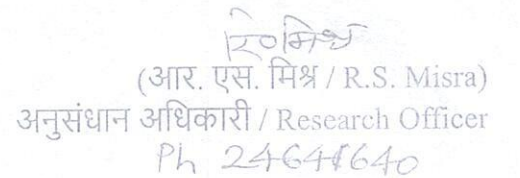 (आर. एस. मिश्र / R.S. Misra)
अनुसंधान अधिकारी / Research Officer
Ph 24641640